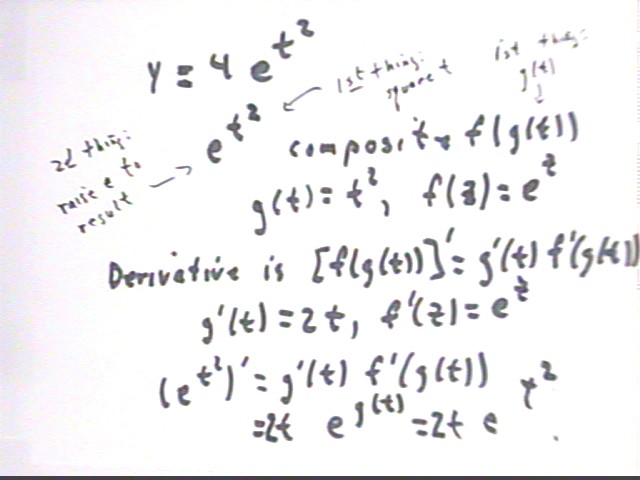 y = 4 e^{t^2}
1st thing:
square t
1st thing:
g(t)
e^{t^2}
2d thing:
raise e to
result
composite f(g(t))
g(t) = t^2, f(z) = e^z
Derivative is [f(g(t))]' = g'(t) f'(g(t))
g'(t) = 2t, f'(z) = e^z
(e^{t^2})' = g'(t) f'(g(t))
= 2t e^{g(t)} = 2t e^{t^2}.